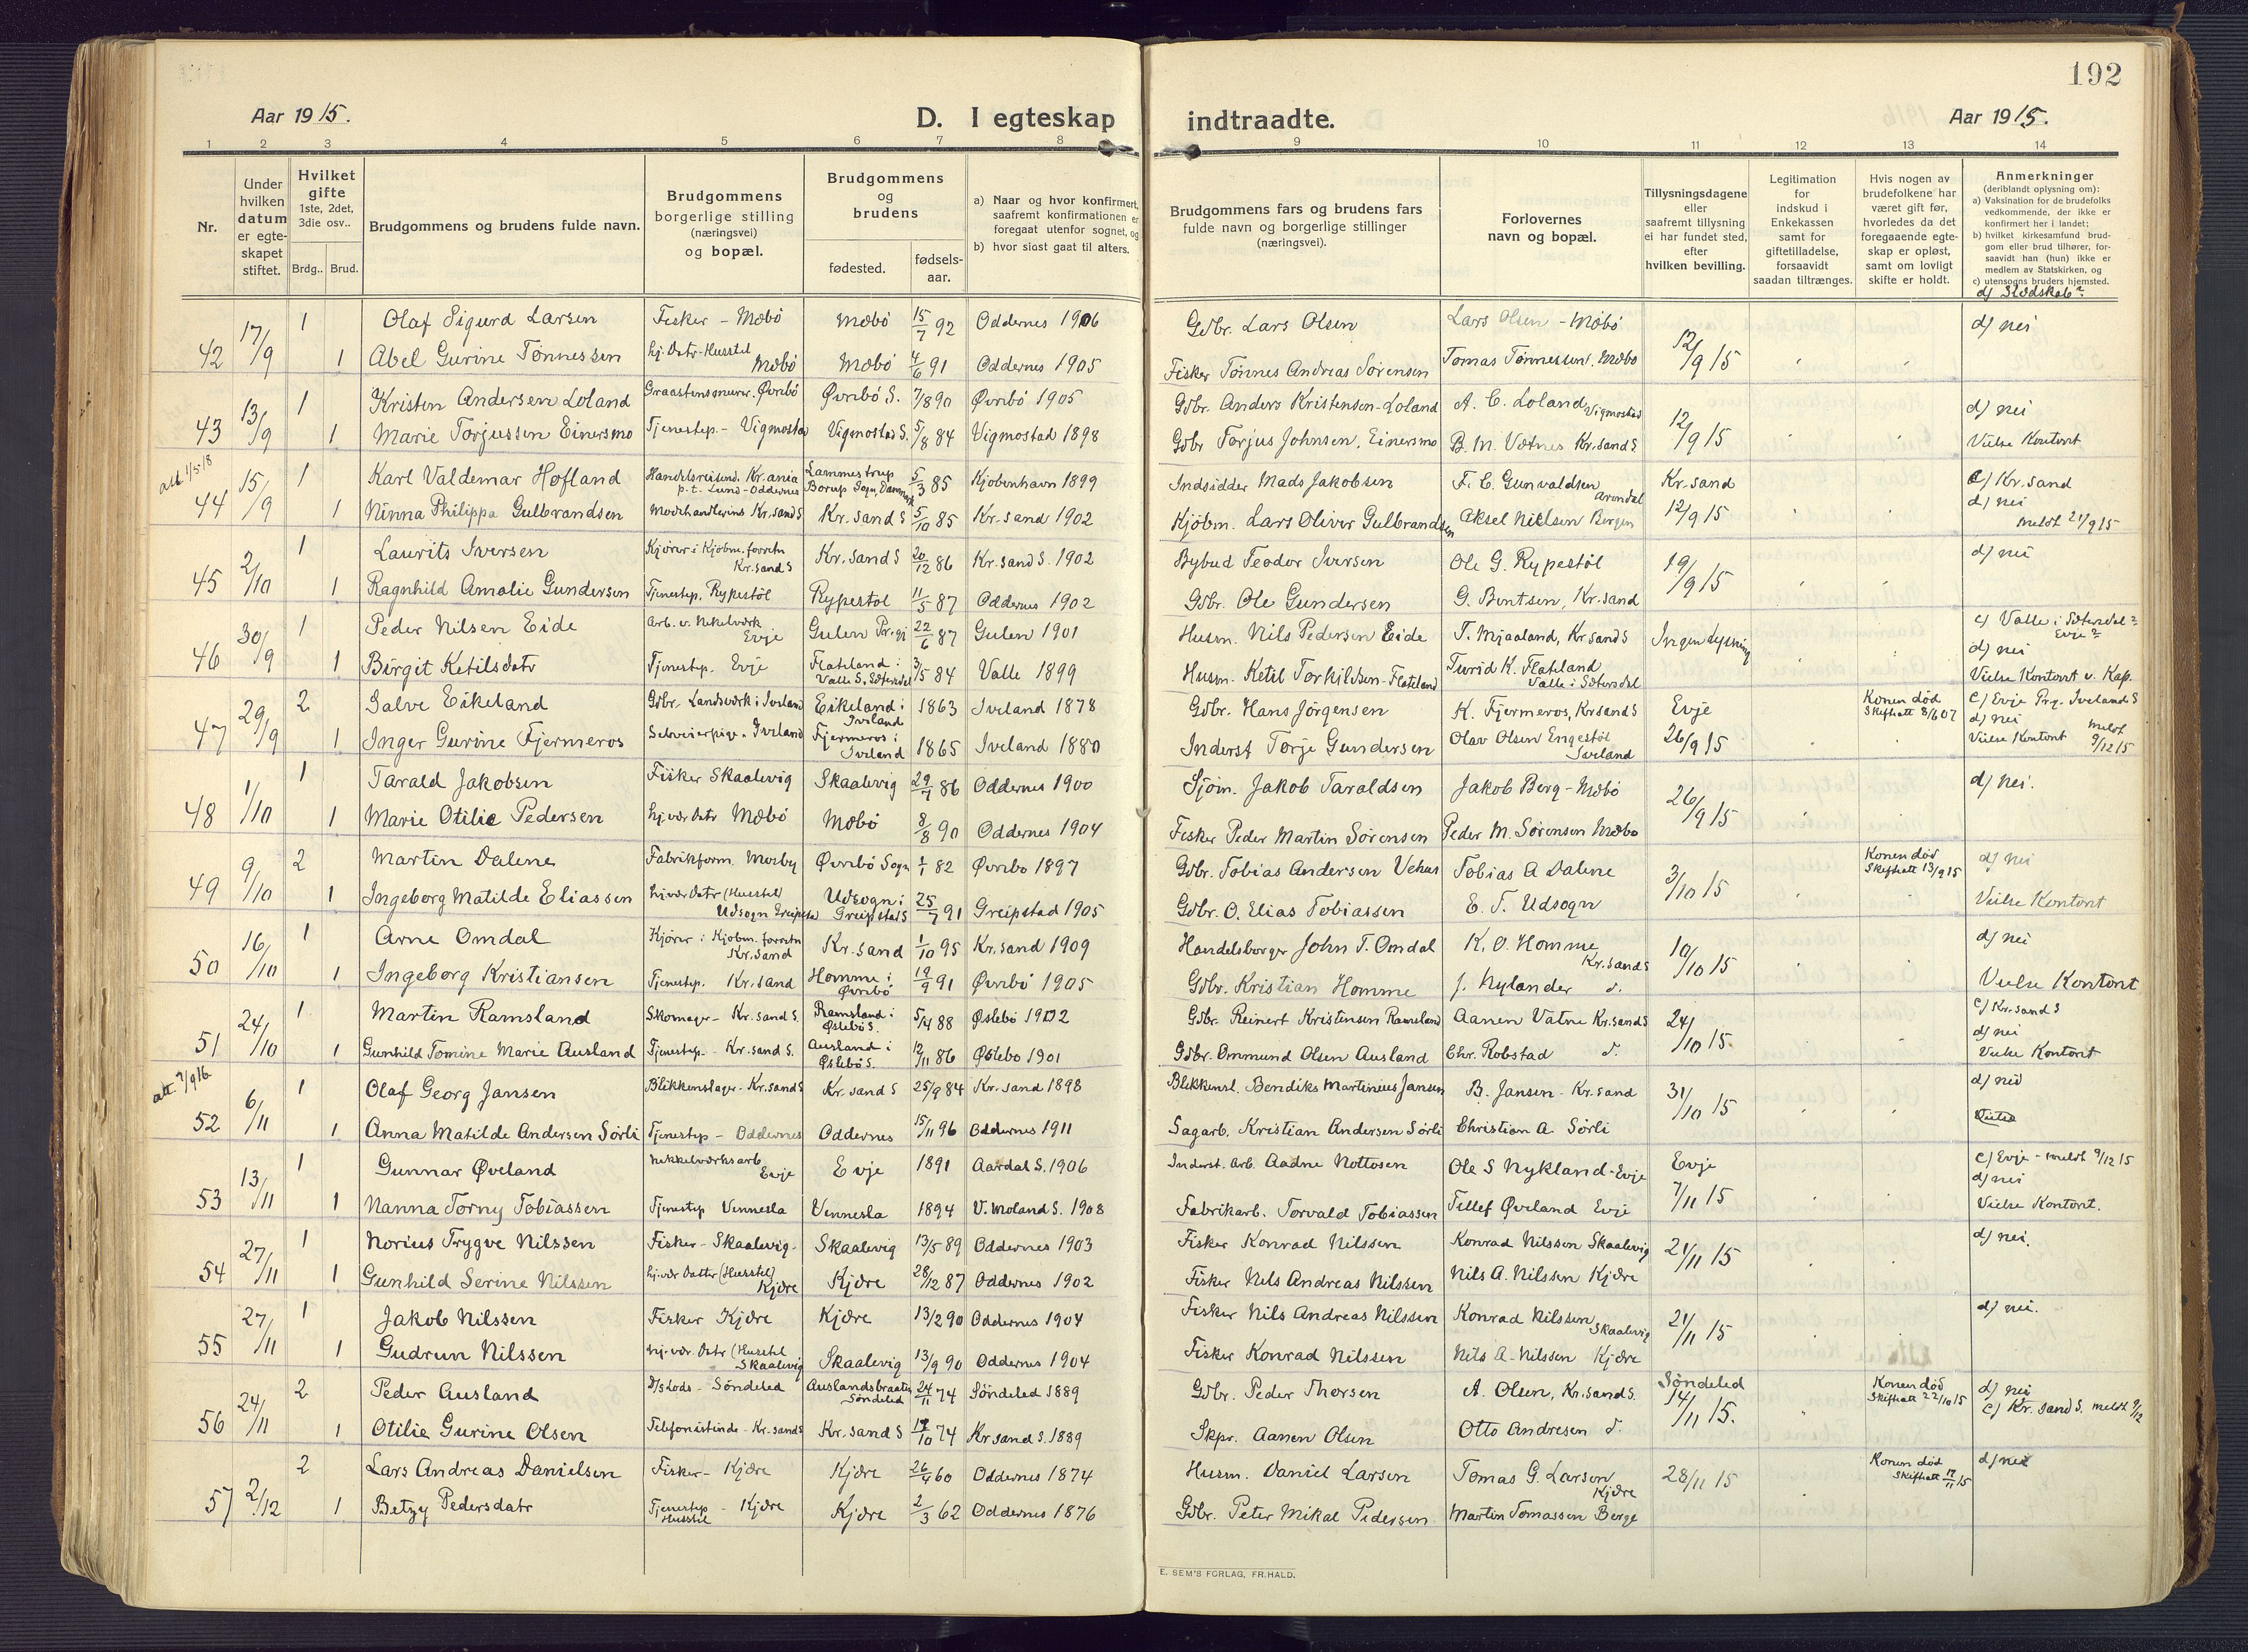 192
Aar 1915.
D. I egteskap indtraadte.
Aar 1915.
1 2 3 4 5 6 7 8 9 10 11 12 13 14
Nr.
Under hvilken datum er egte-skapet stiftet.
Hvilket gifte 1ste, 2det, 3die osv..
Brdg.. Brud.
Brudgommens og brudens fulde navn.
Brudgommens borgerlige stilling (næringsvei) og bopæl.
Brudgommens og brudens
fødested.
fødsels-aar.
a) Naar og hvor konfirmert, saafremt konfirmationen er foregaat utenfor sognet, og
b) hvor sidst gaat til alters.
Brudgommens fars og brudens fars fulde navn og borgerlige stillinger (næringsvei).
Forlovernes navn og bopæl.
Tillysningsdagene eller saafremt tillysning ei har fundet sted, efter hvilken bevilling.
Legitimation for indskud i Enkekassen samt for giftetilladelse, forsaavidt saadan tiltrænges.
Hvis nogen av brudefolkene har været gift før, hvorledes da det foregaaende egte-skap er opløst, samt om lovligt skifte er holdt.
Anmerkninger (deriblandt oplysning om):
a) Vaksination for de brudefolks vedkommende, der ikke er konfirmert her i landet;
b) hvilket kirkesamfund brud-gom eller brud tilhører, for-saavidt han (hun) ikke er medlem av Statskirken, og
c) utensogns bruders hjemsted.
d) Slødskab?
42 17/9 1 Olaf Sigurd Larsen Fisker - Mæbö Mæbö 15/7 92 Oddernes 1906 Gdbr. Lars Olsen Lars Olsen - Mæbö 12/9 15 d) nei
1 Abel Gurine Tønnessen hj. Datr - Husstel Mæbö Mæbö 4/6 91 Oddernes 1905 Fisker Tönnes Andreas Sörensen Tomas Tønnessen, Mæbo
43 13/9 1 Kristen Andersen Loland Graastensmurer. Øvrebö Øvrebö S. 7/8 90 Øvrebö 1905 Gdbr. Anders Kristensen - Loland A. C. Loland Vigmostad 12/9 15 d) nei
1 Marie Torjussen Einersmo Tjenestep. - Vigmostad Vigmostad S. 5/8 84 Vigmostad 1898 Gdbr Torjus Johnsen, Einersmo B. M. Vætnes Kr.sand S Vielse Kontoret
att. 1/5 18
44 15/9 1 Karl Valdemar Hofland Handelsreisend. Kr.ania p.t. Lund - Oddernes Lammestrup Borup Sogn, Danmark 5/3 85 Kjöbenhavn 1899 Indsidder Mads Jakobsen F. C. Gunvaldsen Arendal Kr.sand 12/9 15 c) Kr.sand d) nei
1 Ninna Philippa Gulbrandsen Modehandlerinde Kr.sand S Kr.sand S 5/10 85 Kr.sand 1902 Kjöbm. Lars Oliver Gulbrandsen Aksel Nielsen Bergen meldt 27/9 15
45 2/10 1 Laurits Iversen Kjører i Kjöbm.forretn Kr.sand S Kr.sand S 20/12 86 Kr.sand S. 1902 Bybud Teodor Iversen Ole G. Rypestöl 19/9 15 d) nei
1 Ragnhild Amalie Gundersen Tjenestep. Rypestöl Rypestöl 11/5 87 Oddernes 1902 Gdbr. Ole Gundersen G. Bentsen, Kr.sand
46 30/9 1 Peder Nilsen Eide Arb. v. Nekelværk Evje Gulen Pr.gj 22/6 87 Gulen 1901 Husm. Nils Pedersen Eide T. Mjaaland, Kr.sand S Ingen lysning c) Valle i Sætersdal? Evje? d) nei
1 Birgit Ketilsdatr Tjenestep. Evje Flateland i Valle S. Sætersdal 3/5 84 Valle 1899 Husm. Ketil Torkildsen - Flateland Turid K. Flateland Valle i Sætersdal Vielse Kontoret v. Kap.
47 29/9 2 Salve Eikeland Gdbr. Landsværk i Iveland Eikeland i Iveland 1863 Iveland 1878 Gdbr. Hans Jörgensen K. Fjermeros, Kr.sand S Evje 26/9 15 Konen död Skiftatt 8/6 07 c) Evje Prg. Iveland S d) nei
1 Inger Gurine Fjermeros Selveierpige. Iveland Fjermeros i Iveland 1865 Iveland 1880 Inderst Torje Gundersen Olav Olsen Engestöl Iveland Vielse Kontoret meldt 9/12 15
48 1/10 1 Tarald Jakobsen Fisker Skaalevig Skaalevig 29/7 86 Oddernes 1900 Sjöm. Jakob Taraldsen Jakob Berg - Mæbö 26/9 15 d) nei.
1 Marie Otilie Pedersen hj.vær Datr Mæbö Mæbö 8/8 90 Oddernes 1904 Fisker Peder Martin Sörensen Peder M. Sörensen Mæbo
49 9/10 2 Martin Dalene Fabrikform. Mosby Øvrebö Sogn 1/1 82 Øvrebo 1897 Gdbr. Tobias Andersen Vehus Tobias A Dalene 3/10 15 Konen död Skiftatt 13/9 15 d) nei
1 Ingeborg Matilde Eliassen hj.vær Datr (Husstel) Udsogn Greipstad Udsogn i Greipstad S 25/7 91 Greipstad 1905 Gdbr. O. Elias Tobiassen E. T. Udsogn Vielse Kontoret
50 16/10 1 Arne Omdal Kjører i Kjøbm.forretn Kr.sand Kr.sand 1/10 95 Kr.sand 1909 Handelsborger John T. Omdal K. O. Homme Kr.sand S 10/10 15 d) nei
1 Ingeborg Kristiansen Tjenestep. Kr.sand Homme i Øvrebö 19/9 91 Øvrebö 1905 Gdbr. Kristian Homme J. Nylander d. Vielse Kontoret
51 24/10 1 Martin Ramsland Skomager - Kr.sand S. Ramsland i Øslebö S. 5/4 88 Øslebö 1902 Gdbr. Reinert Kristensen Ramsland Aanen Vatne Kr.sand S 24/10 15 c) Kr.sand S d) nei
1 Gunhild Tomine Marie Ausland Tjenestep. - Kr.sand S. Ausland i Øslebö S. 12/11 86 Øslebo 1901 Gdbr. Ommund Olsen Ausland Chr. Robstad d. Vielse Kontoret
att. 7/9 16
52 6/11 1 Olaf Georg Jansen Blikkenslager - Kr.sand S Kr.sand S 25/9 84 Kr.sand 1898 Blikkensl. Bendiks Martinius Jansen B. Jansen - Kr.sand 31/10 15 d) nei
1 Anna Matilde Andersen Sörli Tjenestep - Oddernes Oddernes 15/11 96 Oddernes 1911 Sagarb. Kristian Andersen Sörli Christian A. Sörli
53 13/11 1 Gunnar Øveland Nekkelværksarb Evje Evje 1891 Aardal S. 1906 Inderst. Arb. Aadne Nottosen Ole S Nykland - Evje Evje 7/11 15 c) Evje - meldt 9/12 15 d) nei
1 Nanna Torny Tobiassen Tjenestep Vennesla Vennesla 1894 V. Moland S. 1908 Fabrikarb. Torvald Tobiassen Tellef Øveland Evje Vielse Kontoret.
54 27/11 1 Norius Trygve Nilssen Fisker - Skaalevig - Skaalevig 13/5 89 Oddernes 1903 Fisker Konrad Nilssen Konrad Nilssen Skaalevig 21/11 15 d) nei.
1 Gunhild Serine Nilssen hj.vær Datter (Husstel) Kjære Kjære 28/12 87 Oddernes 1902 Fisker Nils Andreas Nilssen Nils A. Nilssen Kjære
55 27/11 1 Jakob Nilssen Fisker Kjære Kjære 13/2 90 Oddernes 1904 Fisker Nils Andreas Nilssen Konrad Nilssen Skaalevig 21/11 15 d) nei.
1 Gudrun Nilssen hj.vær Datr (Husstel Skaalevig Skaalevig 13/9 90 Oddernes 1904 Fisker Konrad Nilssen Nils A. Nilssen Kjære
56 24/11 2 Peder Ausland D/s Lods - Söndeled Auslandsbraaten Söndeled 24/11 74 Söndeled 1889 Gdbr. Peder Thorsen A. Olsen, Kr.sand S. Söndeled 14/11 15. Konen död Skiftatt 22/10 15 d) nei
1 Otilie Gurine Olsen Telefonistinde - Kr.sand S Kr.sand S 17/10 74 Kr sand S. 1889 Skpr. Aanen Olsen Otto Andresen d. c) Kr. sand S. meldt 9/12
57 2/12 2 Lars Andreas Danielsen Fisker - Kjære Kjære 26/4 60 Oddernes 1874 Husm. Daniel Larsen Tomas G. Larsen Kjære 28/11 15 Konen död Skiftatt 17/11 15 d) nei
1 Betzy Pedersdatr Tjenestep - Kjære Husstel Kjære 2/3 62 Oddernes 1876 Gdbr. Peter Mikal Pedersen Martin Tomassen Berge
E. SEM'S FORLAG, FR.HALD.